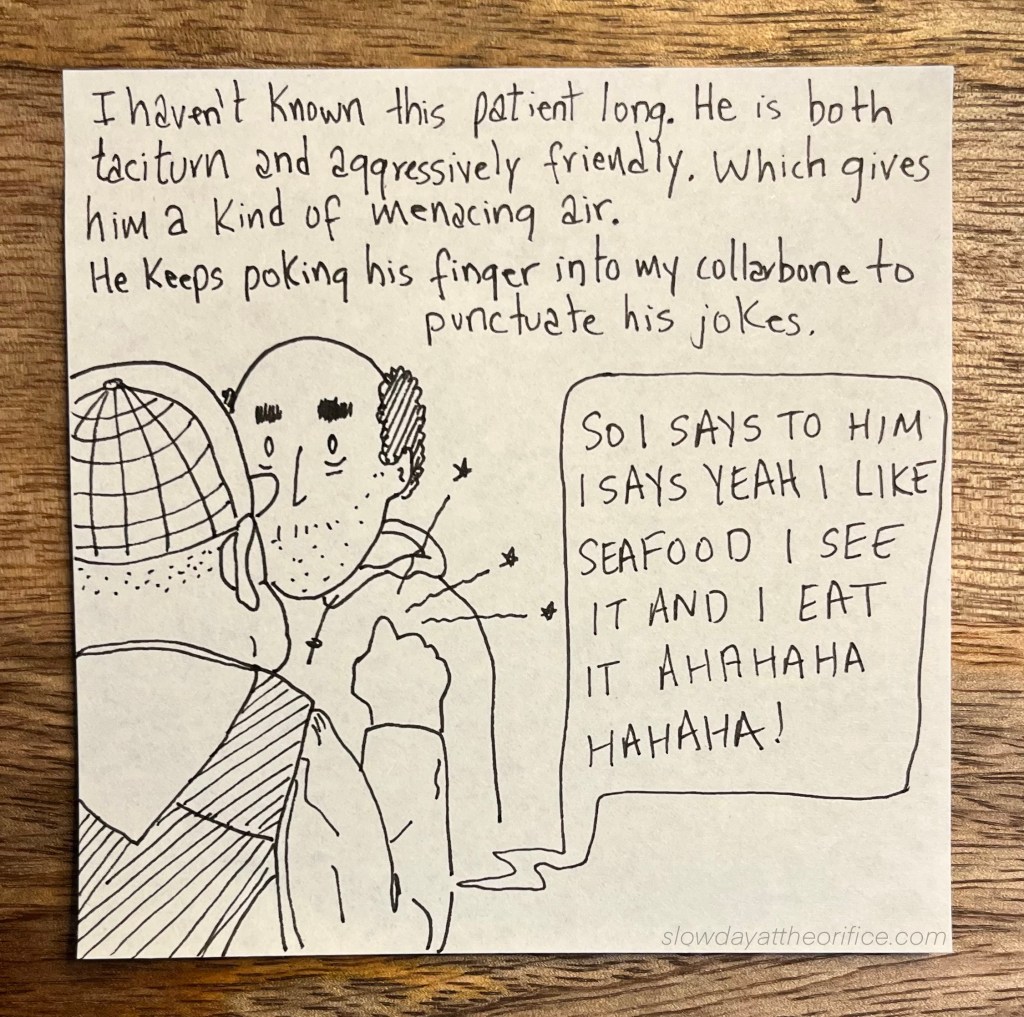 I haven't known this patient long. He is both
taciturn and aggressively friendly. Which gives
him a kind of menacing air.
He keeps poking his finger into my collarbone to
punctuate his jokes.
SO I SAYS TO HIM
I SAYS YEAH I LIKE
SEAFOOD I SEE
IT AND I EAT
IT AHAHAHA
HAHAHA!
slowdayattheorifice.com